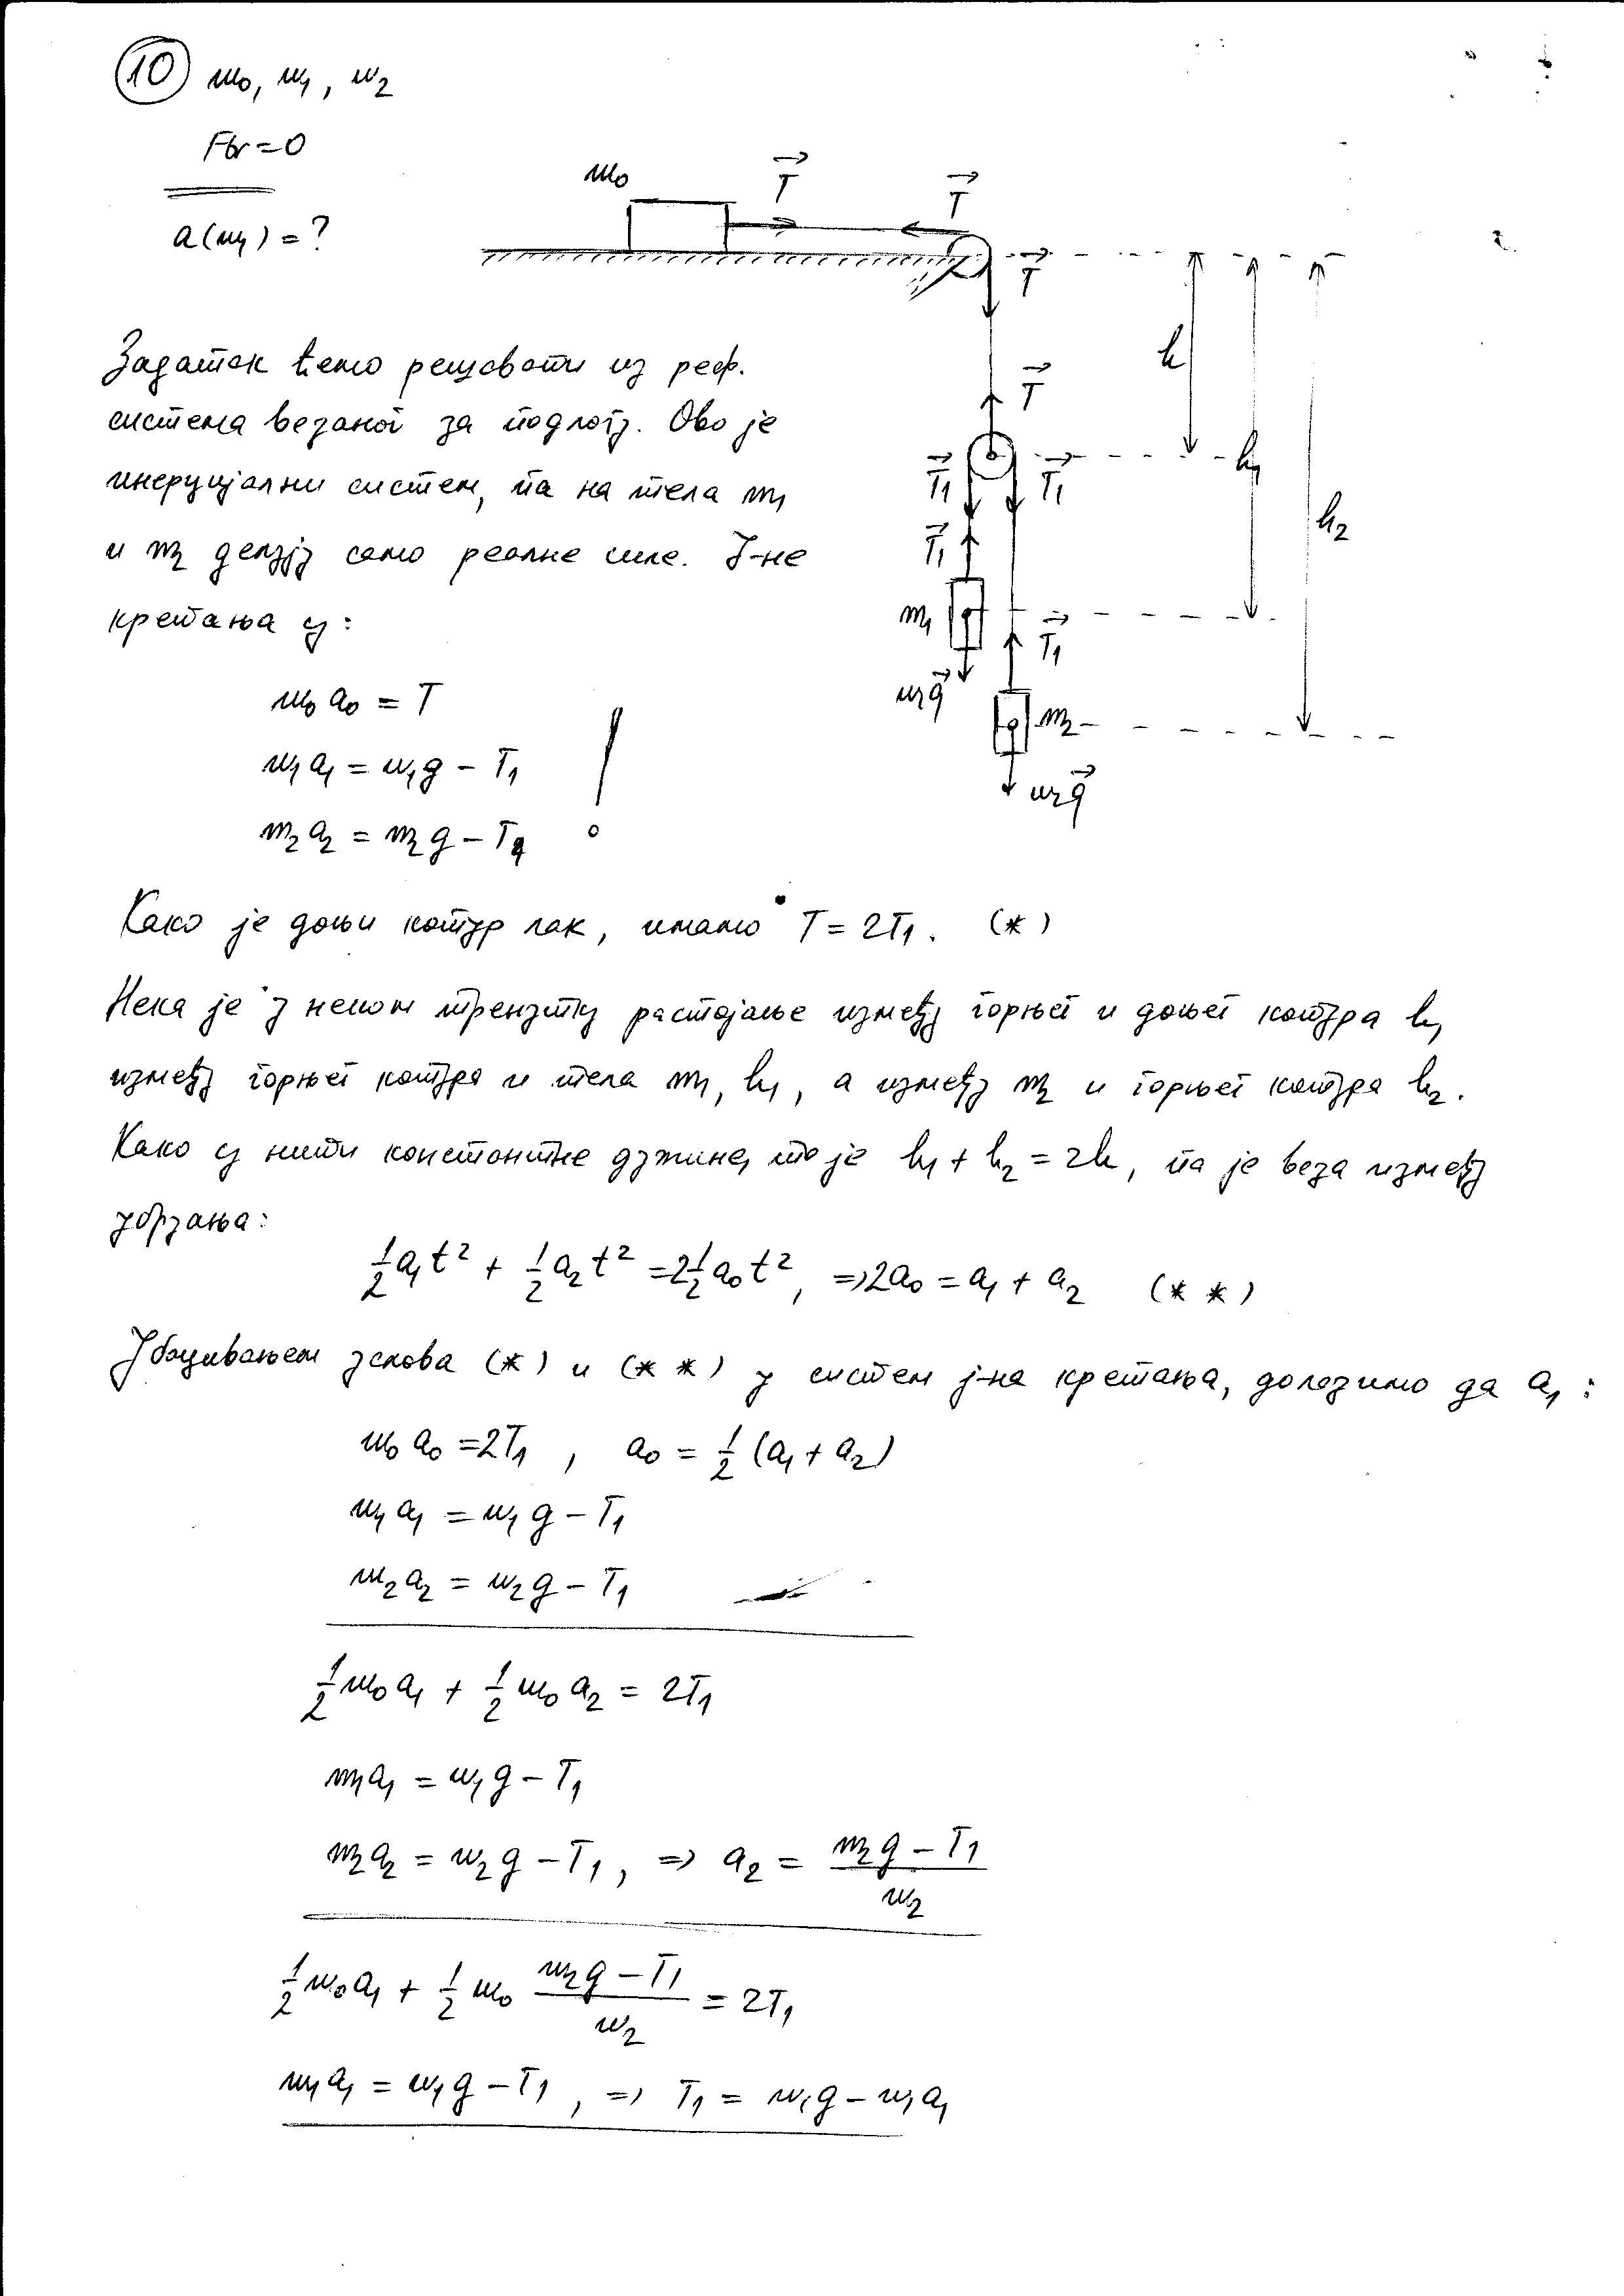 10 m₀, m₁, m₂
Ftr = 0
a(m₁) = ?
m₀
T
T
T
T
h
h₁
h₂
T₁
T₁
T₁
m₁
T₁
m₁g
m₂
m₂g
Задатак ћемо решавати из реф.
система везаног за подлогу. Ово је
инерцијални систем, па на тела m₁
и m₂ делују само реалне силе. Ј-не
кретања су:
m₀a₀ = T
m₁a₁ = m₁g − T₁
m₂a₂ = m₂g − T₁
Како је доњи котур лак, имамо T = 2T₁. (*)
Нека је у неком тренутку растојање између горњег и доњег котура h,
између горњег котура и тела m₁, h₁, а између m₂ и горњег котура h₂.
Како су нити константне дужине, то је h₁ + h₂ = 2h, па је веза између
убрзања:
½a₁t² + ½a₂t² = 2½a₀t², ⇒ 2a₀ = a₁ + a₂ (* *)
Убацивањем услова (*) и (* *) у систем ј-на кретања, долазимо да a₁:
m₀a₀ = 2T₁, a₀ = ½(a₁ + a₂)
m₁a₁ = m₁g − T₁
m₂a₂ = m₂g − T₁
½m₀a₁ + ½m₀a₂ = 2T₁
m₁a₁ = m₁g − T₁
m₂a₂ = m₂g − T₁, ⇒ a₂ = (m₂g − T₁)/m₂
½m₀a₁ + ½m₀ (m₂g − T₁)/m₂ = 2T₁
m₁a₁ = m₁g − T₁, ⇒ T₁ = m₁g − m₁a₁